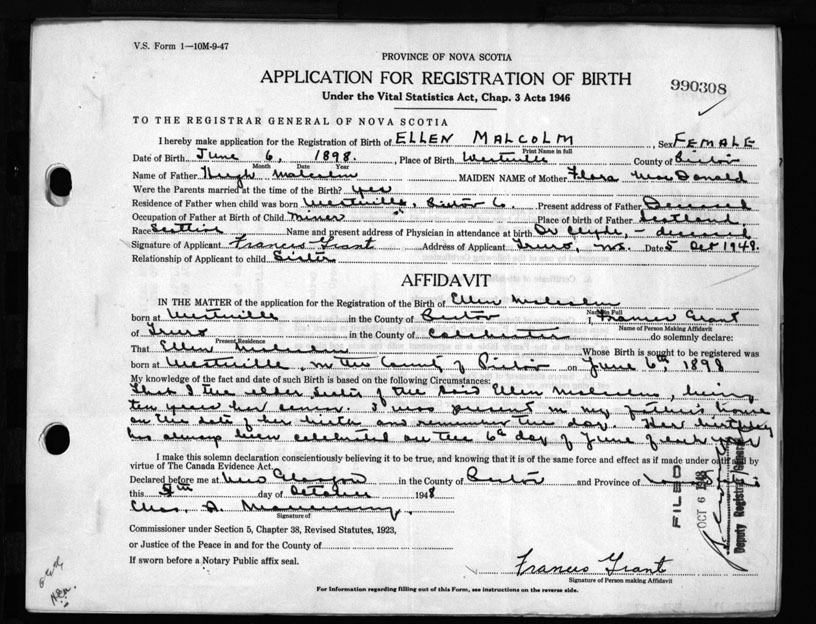 V.S. Form 1—10M-9-47
PROVINCE OF NOVA SCOTIA
APPLICATION FOR REGISTRATION OF BIRTH
990308
Under the Vital Statistics Act, Chap. 3 Acts 1946
TO THE REGISTRAR GENERAL OF NOVA SCOTIA
I hereby make application for the Registration of Birth of ELLEN MALCOLM, Sex FEMALE
Print Name in full
Date of Birth June 6, 1898. , Place of Birth Westville County of Pictou
Month Date Year
Name of Father Hugh Malcolm MAIDEN NAME of Mother Flora MacDonald
Were the Parents married at the time of the Birth? Yes
Residence of Father when child was born Westville, Pictou Co. Present address of Father Deceased
Occupation of Father at Birth of Child Miner Place of birth of Father Scotland.
Race Scottish Name and present address of Physician in attendance at birth Dr Clyde, - deceased
Signature of Applicant Frances Grant Address of Applicant Truro, N.S. Date 5 Oct 1948.
Relationship of Applicant to child Sister
AFFIDAVIT
IN THE MATTER of the application for the Registration of the Birth of Ellen Malcolm
Name in Full
born at Westville in the County of Pictou I, Frances Grant
Name of Person Making Affidavit
of Truro in the County of Colchester do solemnly declare:
Present Residence
That Ellen Malcolm Whose Birth is sought to be registered was
born at Westville, in the County of Pictou on June 6th, 1898
My knowledge of the fact and date of such Birth is based on the following Circumstances:
That I the older sister of the said Ellen Malcolm, being
ten years her senior. I was present in my father's house
on the date of her birth and remember the day. Her birthday
has always been celebrated on the 6th day of June of each year
I make this solemn declaration conscientiously believing it to be true, and knowing that it is of the same force and effect as if made under oath and by
virtue of The Canada Evidence Act.
Declared before me at New Glasgow in the County of Pictou and Province of
this 5th day of October 1948
Chas. A.
Signature of
Commissioner under Section 5, Chapter 38, Revised Statutes, 1923,
or Justice of the Peace in and for the County of
If sworn before a Notary Public affix seal.
Frances Grant
Signature of Person making Affidavit
For Information regarding filling out of this Form, see instructions on the reverse side.
FILED
OCT 6 1948
Deputy Registrar General